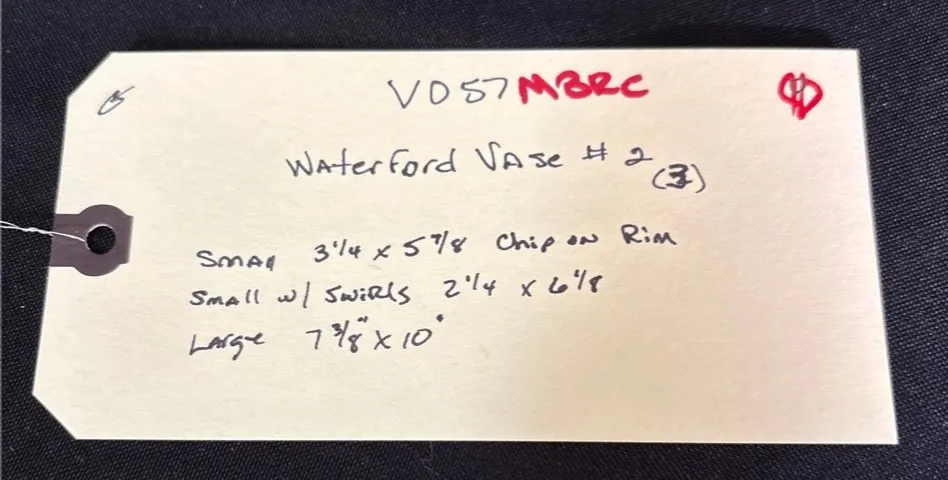 VD57 MBRC
Waterford Vase # 2
(3)
Small 3 1/4 x 5 7/8 Chip on Rim
Small w/ Swirls 2 1/4 x 6 1/8
Large 7 3/8" x 10"